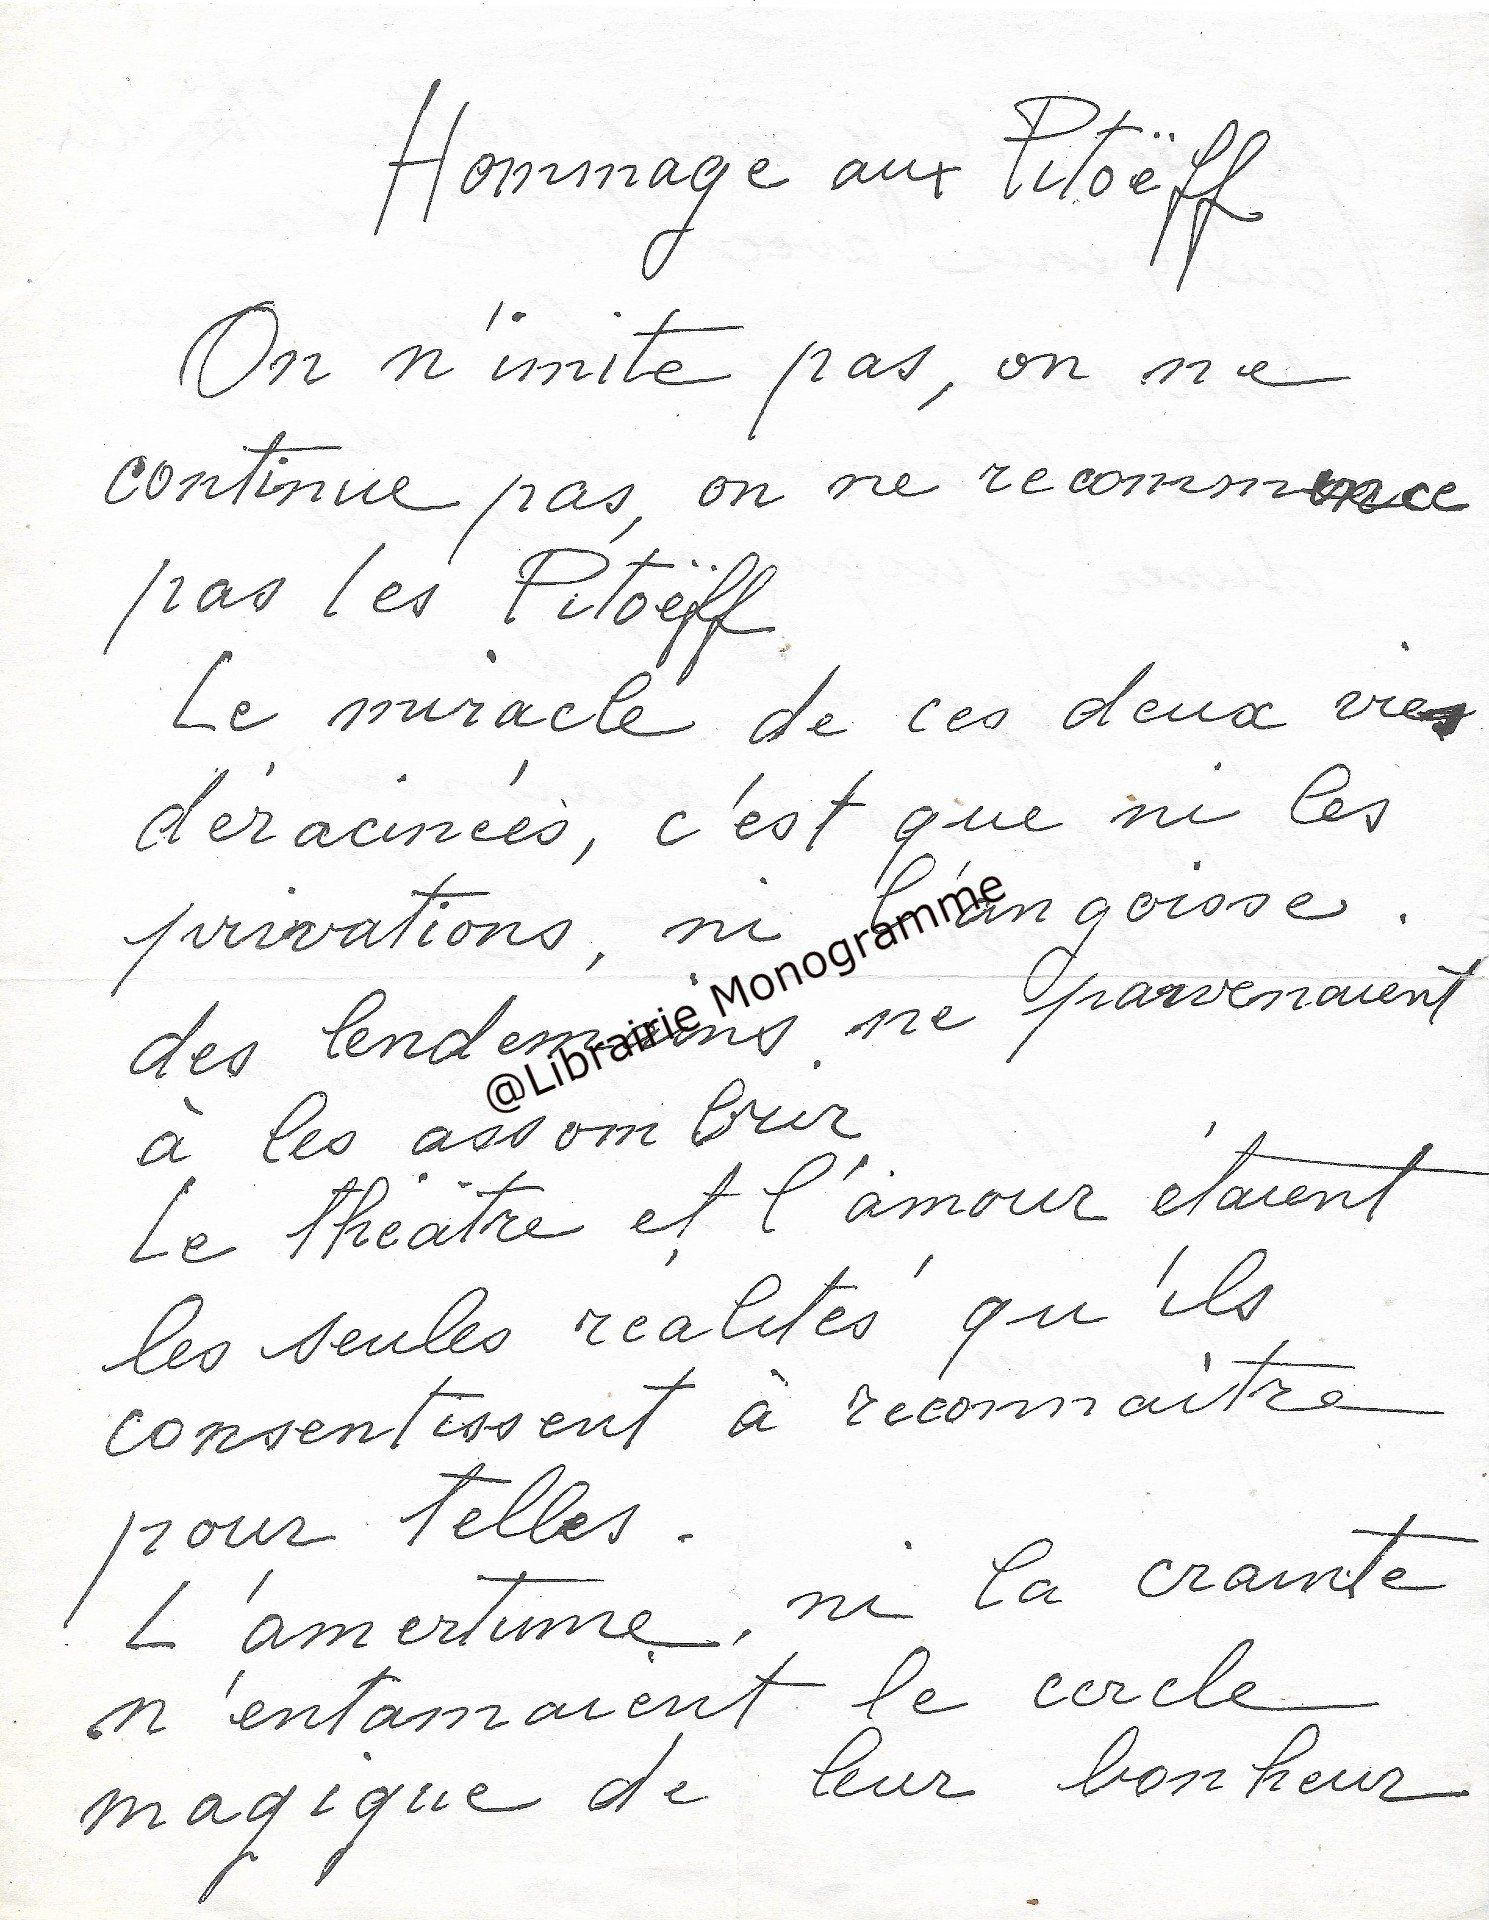 Hommage aux Pitoëff
On n'imite pas, on ne
continue pas, on ne recommence
pas les Pitoëff
Le miracle de ces deux vies
déracinées, c'est que ni les
privations, ni l'angoisse.
des lendemains ne parvenaient
@Librairie Monogramme
à les assombrir
Le théâtre et l'amour étaient
les seules réalités qu'ils
consentissent à reconnaitre
pour telles.
L'amertume, ni la crainte
n'entamaient le cercle
magique de leur bonheur